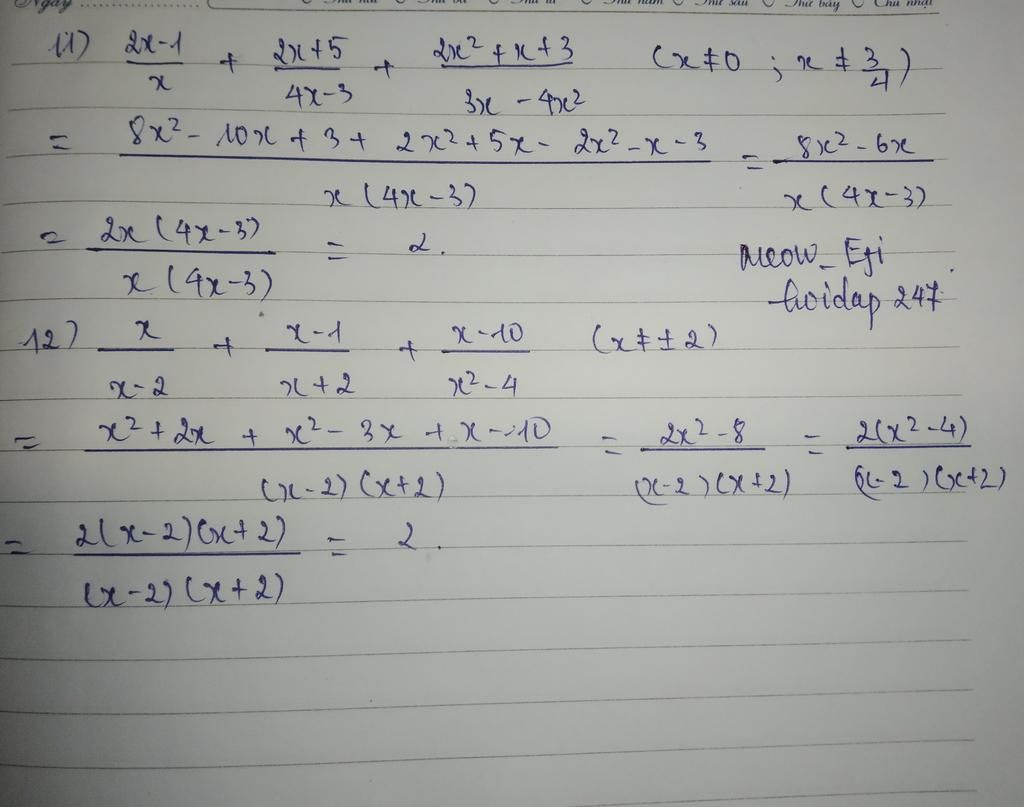 Ngày
Thứ năm Thứ sáu Thứ bảy Chủ nhật
11) (2x-1)/x + (2x+5)/(4x-3) + (2x²+x+3)/(3x-4x²) (x≠0 ; x≠3/4)
= (8x²-10x+3+2x²+5x-2x²-x-3)/(x(4x-3)) = (8x²-6x)/(x(4x-3))
= (2x(4x-3))/(x(4x-3)) = 2.
Meow_Eji
hoidap 247
12) x/(x-2) + (x-1)/(x+2) + (x-10)/(x²-4) (x≠±2)
= (x²+2x+x²-3x+x-10)/((x-2)(x+2)) = (2x²-8)/((x-2)(x+2)) = (2(x²-4))/((x-2)(x+2))
= (2(x-2)(x+2))/((x-2)(x+2)) = 2.